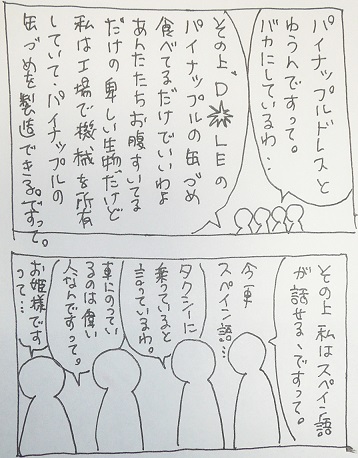 パイナップルドレスと
ゆうんですって。
バカにしているわ・・
その上゛D✹LEの
パイナップルの缶づめ
食べてるだけでいいわよ
あんたたちお腹すいてる
だけの卑しい生物だけど
私は工場で機械を所有
していて・パイナップルの
缶づめを製造できる。ですって。
その上 私はスペイン語
が話せる、ですって。
今更
スペイン語…
タクシーに
乗っていると
言っているわ。
車にのってい
るのは偉い
人なんですって。
お姫様です
って…